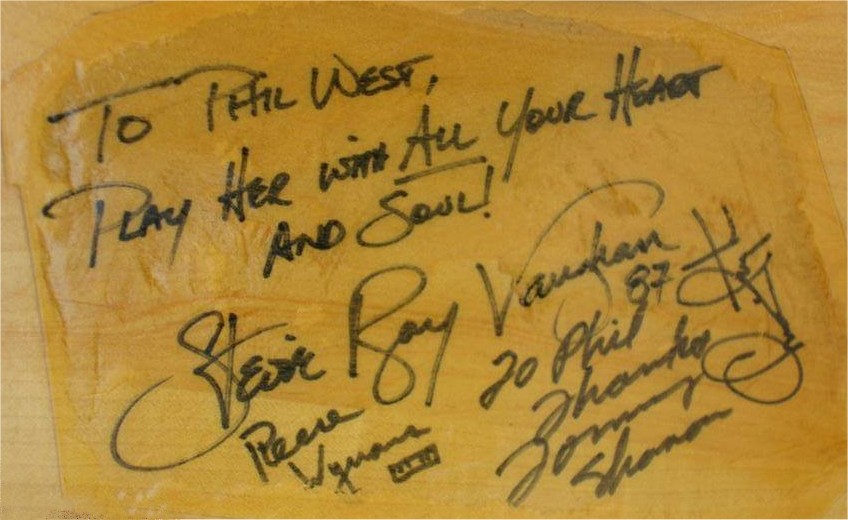 To Phil West,
Play Her with All Your Heart
And Soul!
Stevie Ray Vaughan
87
Reese
Wynans
To Phil
Thanks
Tommy
Shannon